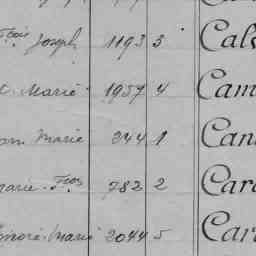 fçois Joseph 1193 3 Cal
Marie 1957 4 Cam
Marie 344 1 Can
Marie. fçois 782 2 Car
Honoré Marie 2044 5 Car